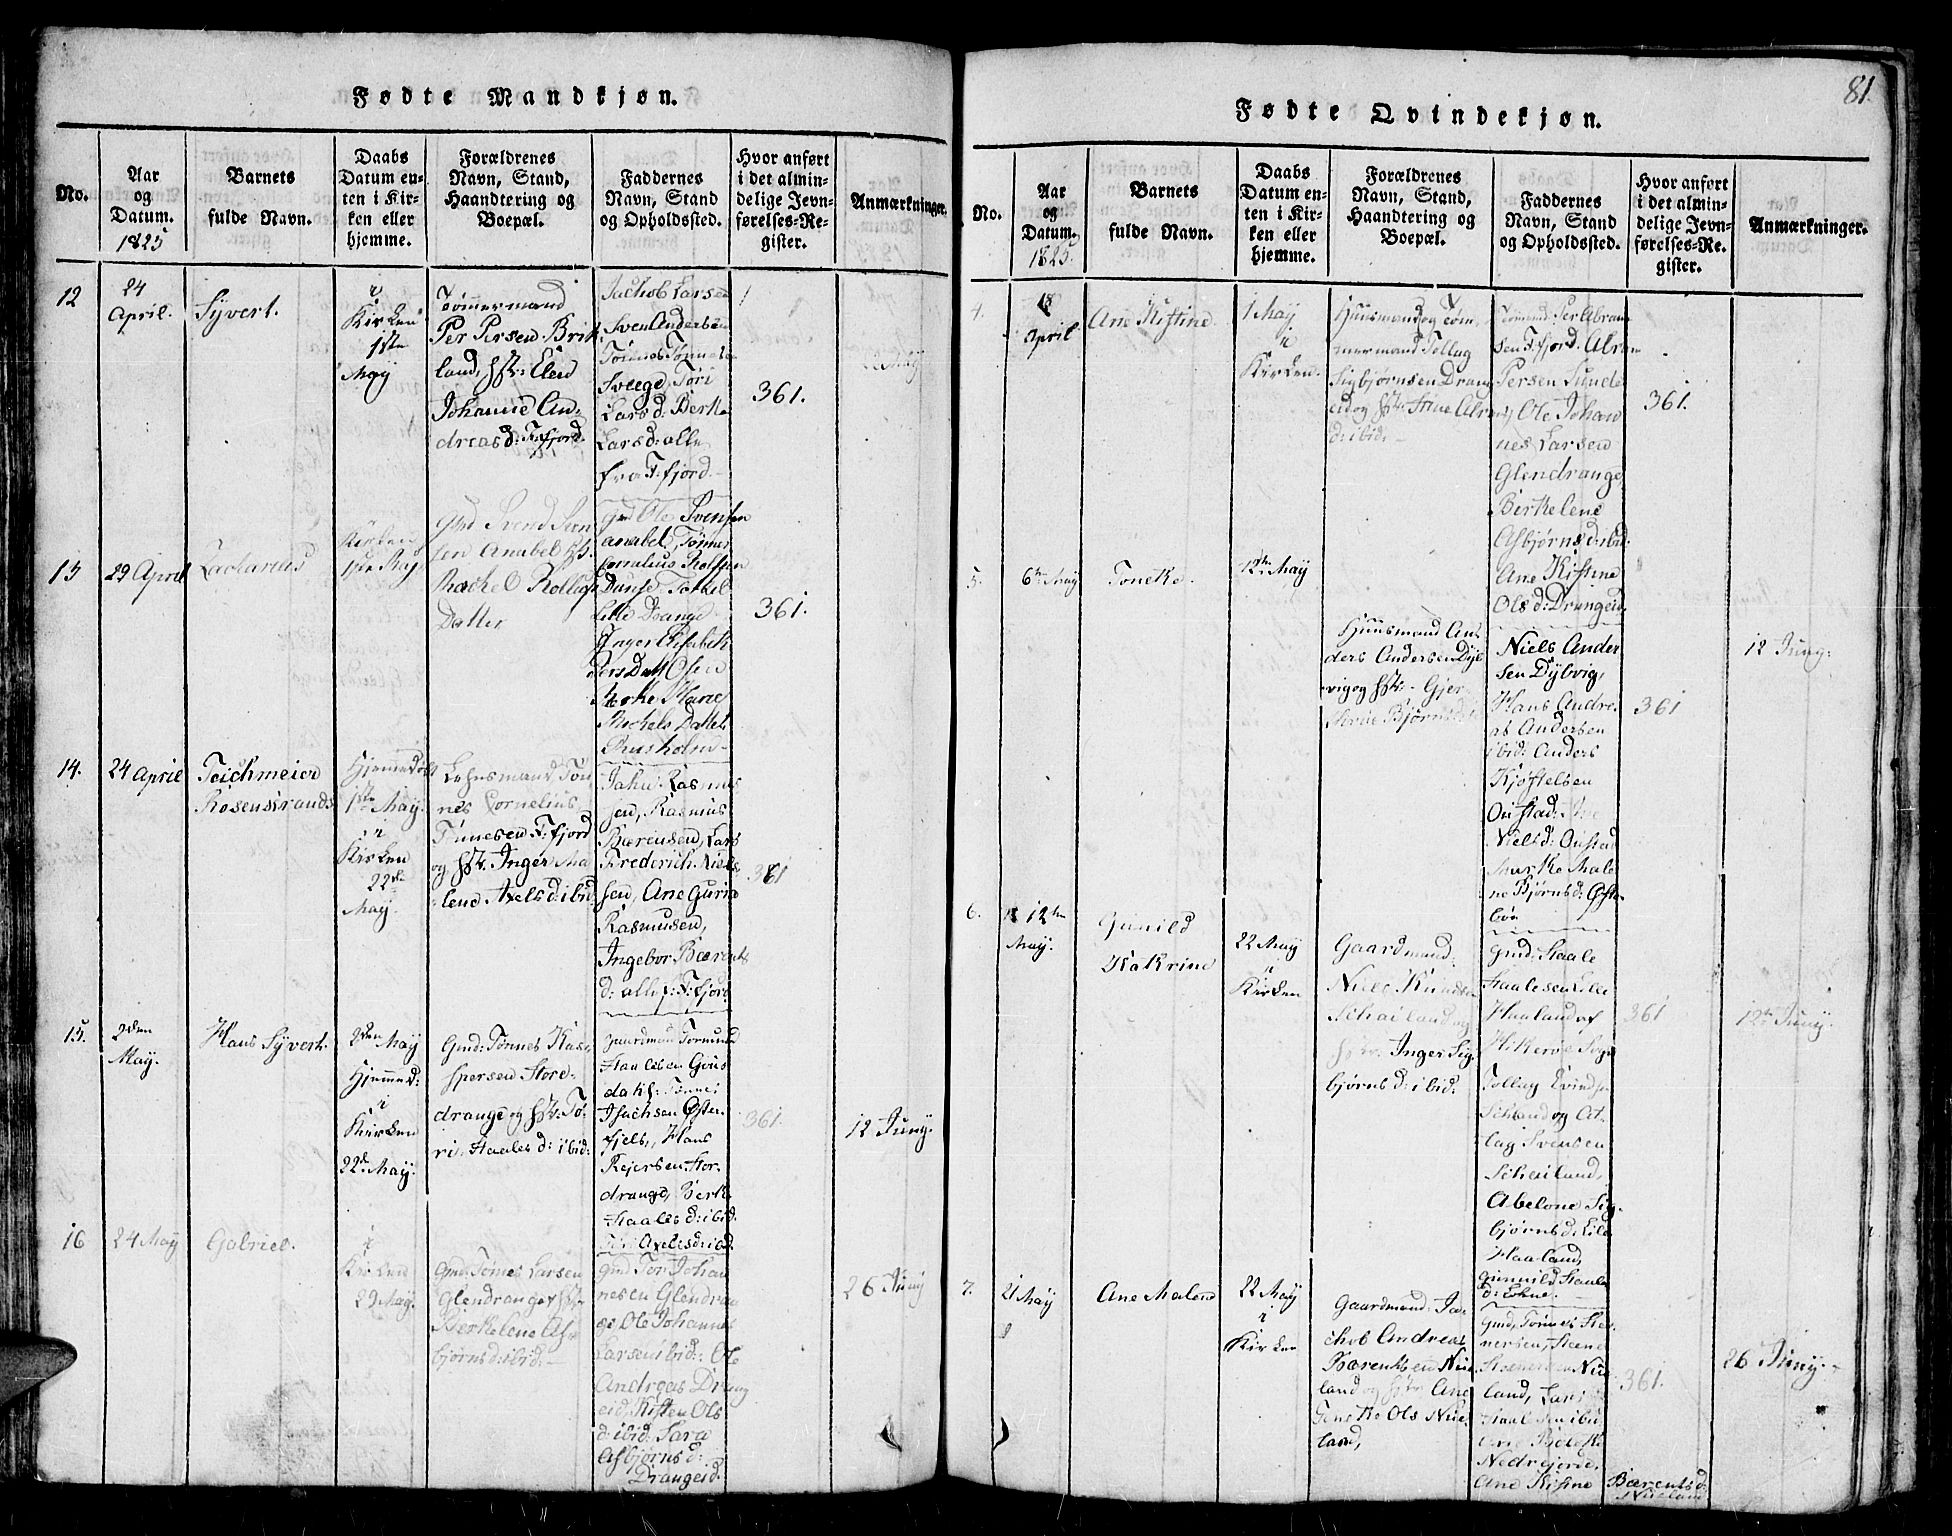 Fødte Mandkjøn.
No.
Aar
og
Datum.
1825
Barnets
fulde Navn.
Daabs
Datum en-
ten i Kir-
ken eller
hjemme.
Forældrenes
Navn, Stand,
Haandtering og
Boepæl.
Faddernes
Navn, Stand
og Opholdssted.
Hvor anført
i det almin-
delige Jevn-
førelses-Re-
gister.
Anmærkninger.
12
24
April.
Syvert.
i
Kirken
1ste
May
Tømmermand
Per Persen Brik
land, hst: Elen
Johanne An-
dreasd: F:fjord.
Jachob Larsen
Sven Andersen
Tønnes Tønnes
Sveege, Tøri
Lars d: Berke
Lars d: alle
fra F:fjord
361.
13
29 April
Zacharias
Kirken
1ste May
Gmd Svend Sven
sen Anabel hst.
Rachel Rollufs
Datter
gmd Ole Svensen
anabel, Tønnes
Cornelius Rolfsen
Tokkel
Lille Drange
Inger Elisabeth
Pers Datt Osen
Berke Marie
Mickels Datter
361.
14.
24 April
Teichmeier
Rosenstrands
Hjemmedøbt
1ste May.
i
Kirken
22de
May.
Lehnsmand Tøn
nes Cornelius
Tønnesen F:fjord
og hst. Inger Ma
lene Axelsd: ibid:
Jahn Rasmus
sen, Rasmus
Bærensen, Lars
Frederich Niels
sen, Ane Guria
Rasmusen,
Ingebor Bærents
d: alle f: F:fjord
361
15.
2den
May.
Hans Syvert.
2den May
Hjemmed:
i
Kirken
22de May.
Gmd: Tønnes Kas-
persen Store-
drange og hst: Tø-
ri Staales d: ibid:
gaardman Tormund
Staalesen Gous
dahl: Tønnes
Isachsen Øster-
fjels, Hans
Rejersen Stor-
drange, Berke
Staales d: ibid.
Tøri Axelsd: ibid.
361.
12 Juny.
16
24 May
Gabriel.
i
Kirken
29 May.
Gmd: Tønnes Larsen
Glendrange & hst:
Berkelene As-
bjørnsd: ibid:
gmd Tor Johan
nesen Glendran
ge, Ole Johannes
Larsen ibid: Ole
Andreas Drang
eid: Kisten Ols
d: ibid: Sara
Asbjørnsd:
Drangeid.
26 Juny
81.
Fødte Qvindekjøn.
No.
Aar
og
Datum.
1825.
Barnets
fulde Navn.
Daabs
Datum en-
ten i Kir-
ken eller
hjemme.
Forældrenes
Navn, Stand,
Haandtering og
Boepæl.
Faddernes
Navn, Stand
og Opholdssted.
Hvor anført
i det almin-
delige Jevn-
førelses-Re-
gister.
Anmærkninger.
4.
18
April.
Ane Kistine.
1 May
i
Kirken.
Huusmand og Tøm-
mermand Tollag
Sigbjørnsen Drang
eid og hst: Stine Abrams
d: ibid.
Tømmd: Per Abram
sen F:fjord. Abram
Persen Lunde
Ole Johan
nes Larsen
Glendrange,
Berkelene
Asbjørnsd: ibid.
Ane Kistine
Olsd: Drangeid.
361.
5.
6te May
Toneke.
12te May
Huusmand An-
ders Andersen Dyb
vig og hst:- Gjer
Bjørnsd:
Niels Ander
sen Dybvig,
Hans Andre-
as Andersen
ibid: Anders
Kjøstelsen
Onstad: Ane
Nielsd: Onstad
Marke Male
ne Bjørnsd: Østa-
bøe
361
12 Juny.
6.
12te
May.
Gunild
Katrine
22 May
i
Kirken
Gaardmand:
Niels Knudsen
Schailand og
hst: Inger Sig-
bjørnsd: ibid:
gmd: Staale
Staalesen Lille
Haaland af
Sogn
Tollag Evindsen
og At-
lag Svensen
Schailand,
Abelone Sig-
bjørnsd: Lille
Haaland,
Gunnild Staale
d:
361
12te Juny.
7.
21 May
Ane Malene
22 May
i
Kirken
Gaardmand: Ja-
chob Andreas
Bærentsen Nue
land og hst: Ane
Tonette Ols Nue-
land,
Gmd, Tønnes Ste-
nersen, Steene
Stenersen Nue-
land, Lars
Staalesen ibid
Nedrejorde.
Ane Kistine
Bærents d:
Nueland
361.
26 Juny.